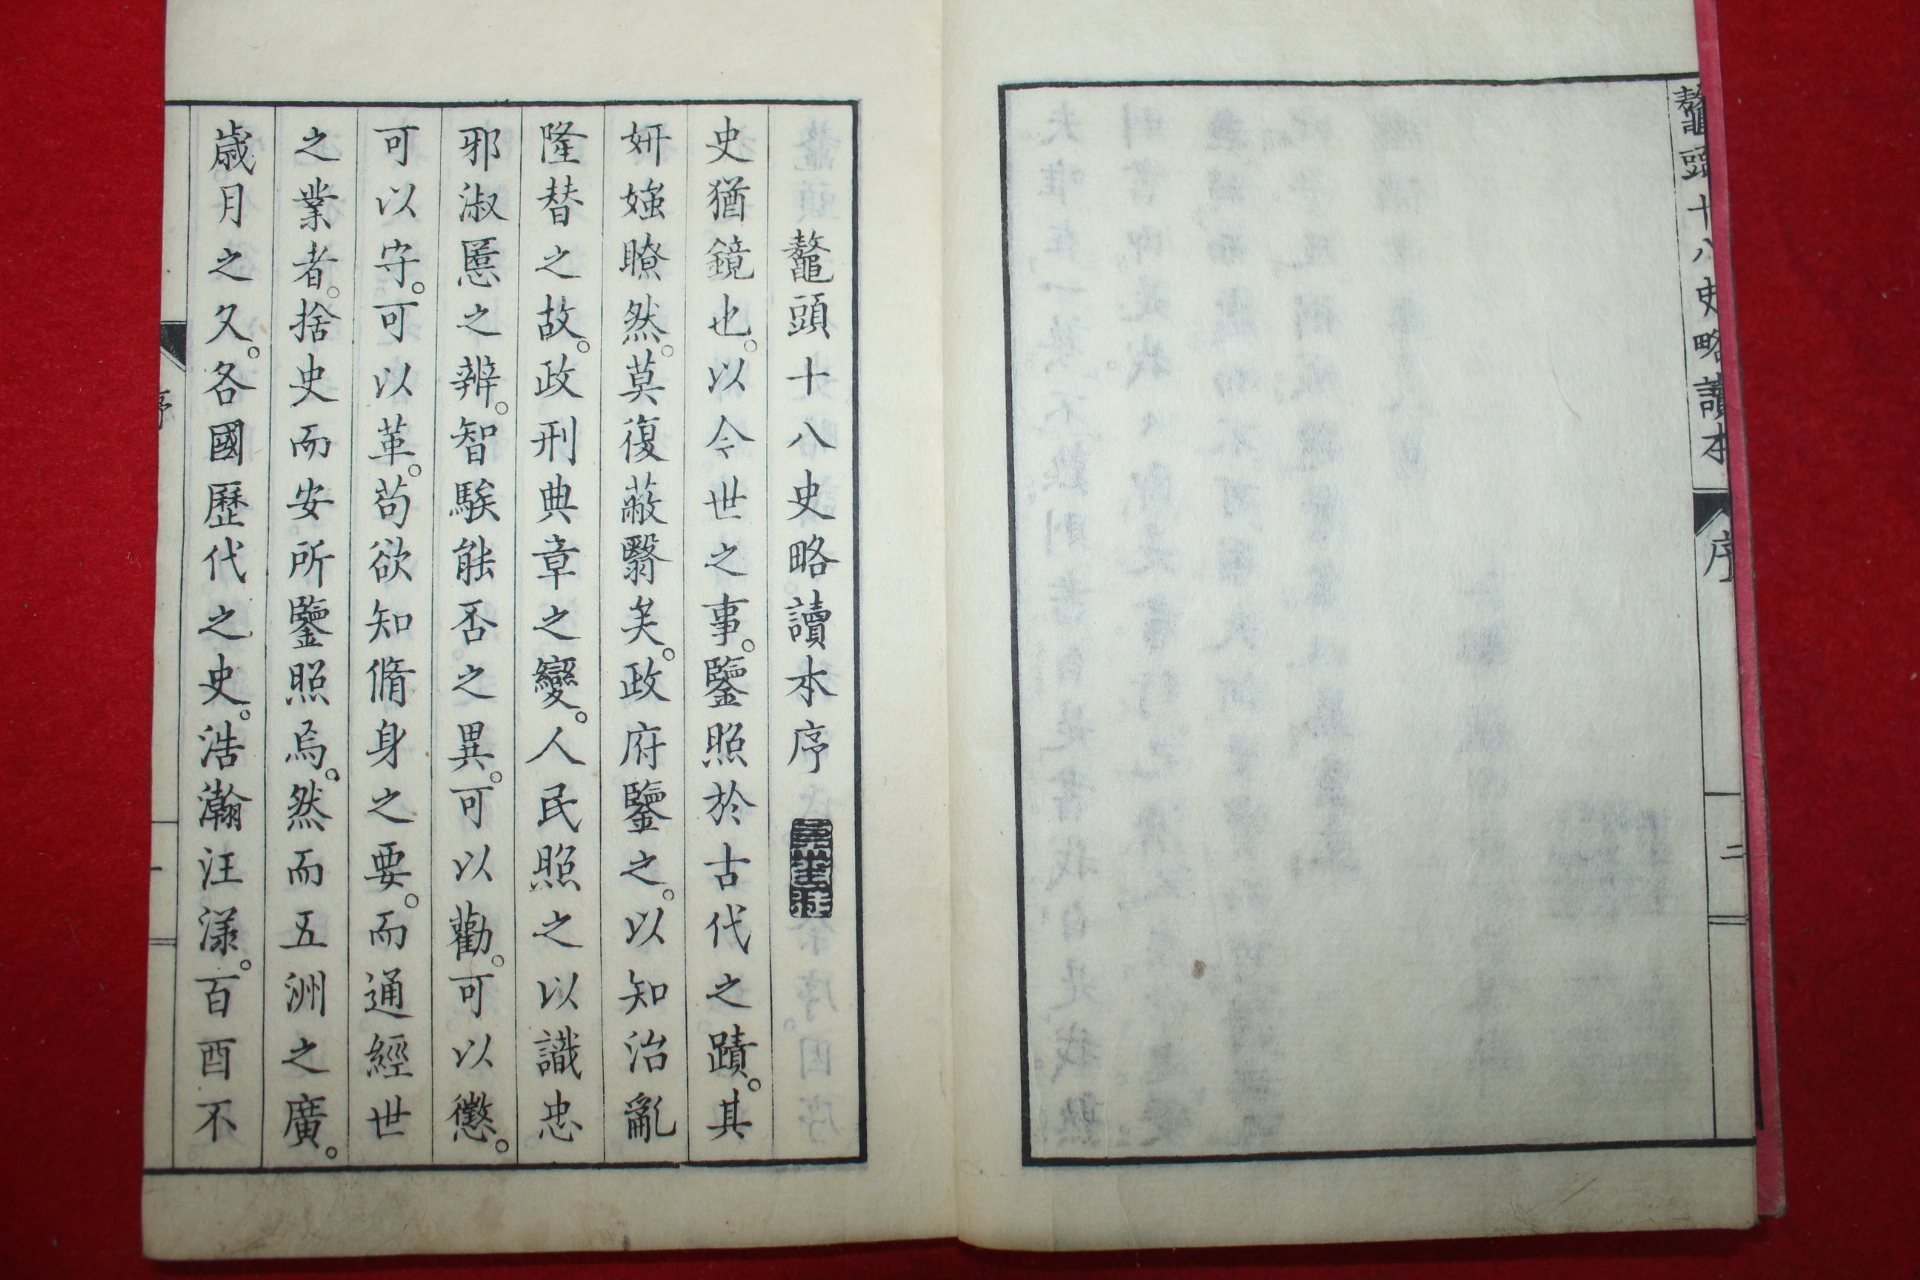 鼇頭十八史略讀本
序
二
鼇頭十八史略讀本序
史猶鏡也。以今世之事。鑒照於古代之蹟。其
妍媸瞭然。莫復蔽翳矣。政府鑒之。以知治亂
隆替之故。政刑典章之變。人民照之以識忠
邪淑慝之辨。智騃能否之異。可以勸。可以懲。
可以守。可以革。苟欲知脩身之要。而通經世
之業者。捨史而安所鑒照焉。然而五洲之廣。
歲月之久。各國歷代之史。浩瀚汪漾。百酉不
序
一